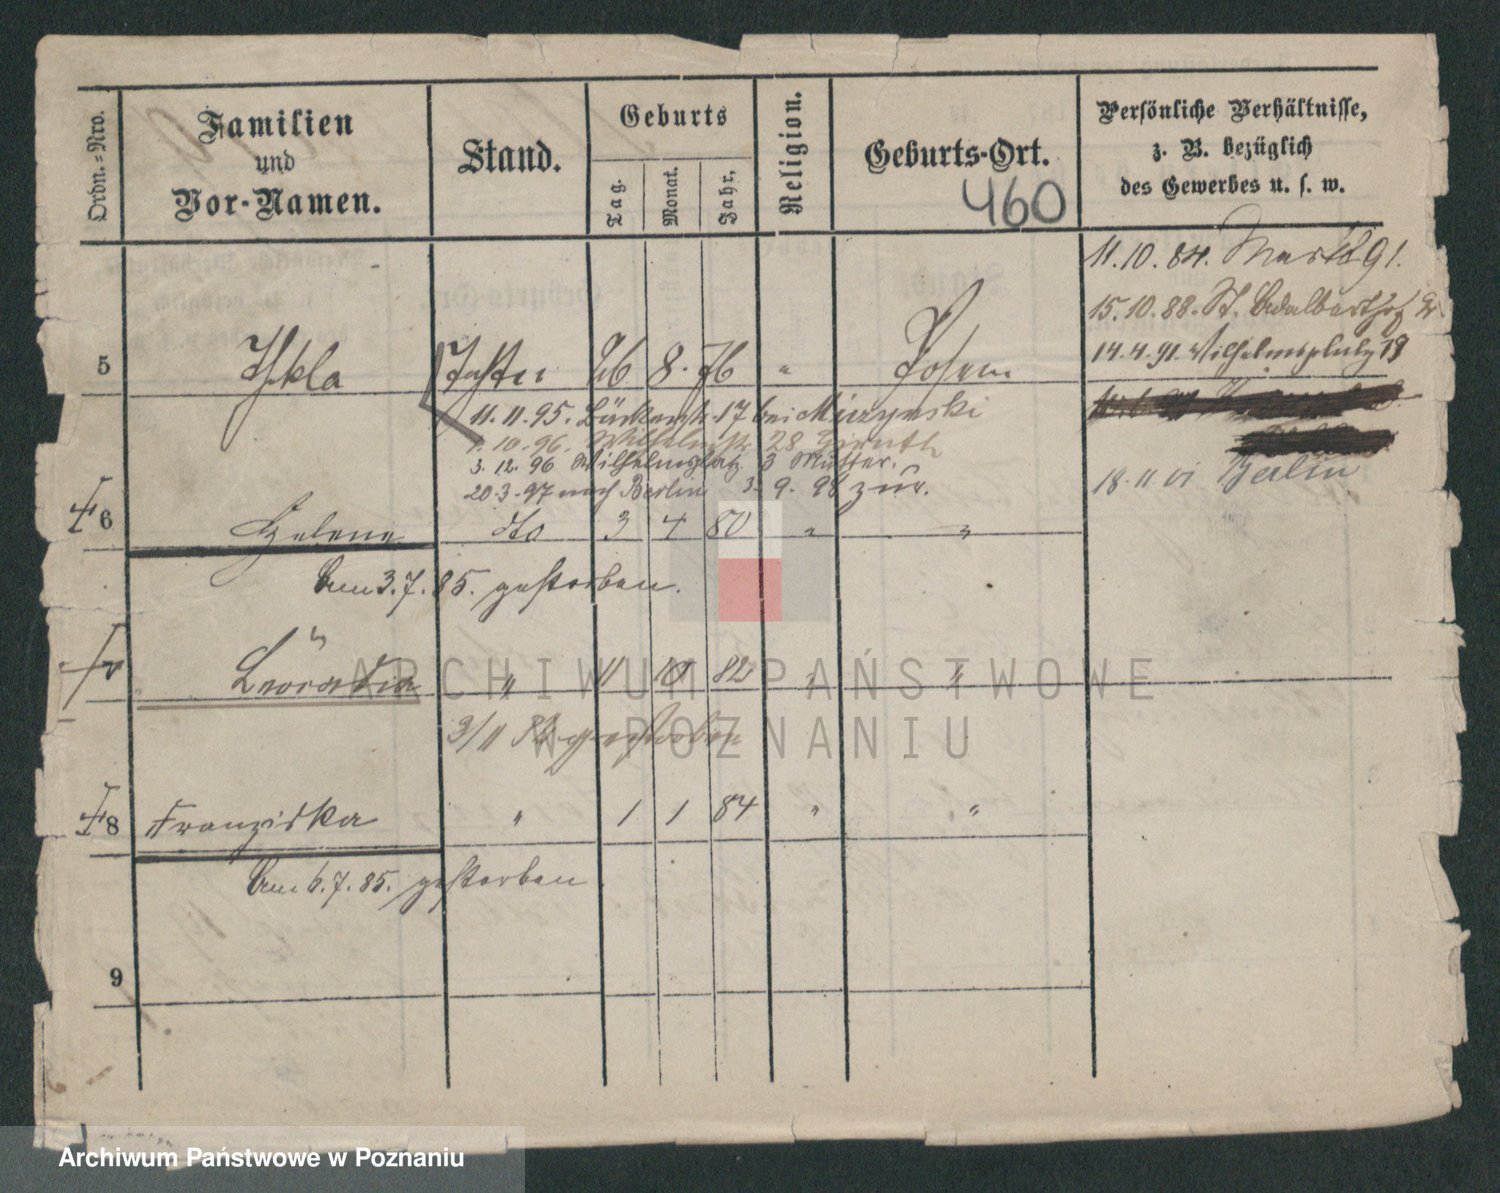 Ordn.=Nro.
Familien
und
Vor-Namen.
Stand.
Geburts
Tag.
Monat.
Jahr.
Religion.
Geburts-Ort.
460
Persönliche Verhältnisse,
z. B. bezüglich
des Gewerbes u. s. w.
11.10.84. Markt 91.
15.10.88. St. Adalbert
14.4.91. Wilhelmsplatz 18
5 Thekla 26 8. 76 " Posen
11.11.95. Bäckerstr. 17 bei
1.10.96. Wilhelmstr. 28
3.12.96 Wilhelmsplatz 3 Mutter.
20.3.97 nach Berlin 3.9.98 zur.
18.11.01 Berlin
6 Helene do 3 4 80 " "
Am 3.7.85. gestorben.
" 11 10 82 " "
3/11 gestorben
8 Franziska " 1 1 84 " "
Am 6.7.85. gestorben
9
ARCHIWUM PAŃSTWOWE
W POZNANIU
Archiwum Państwowe w Poznaniu